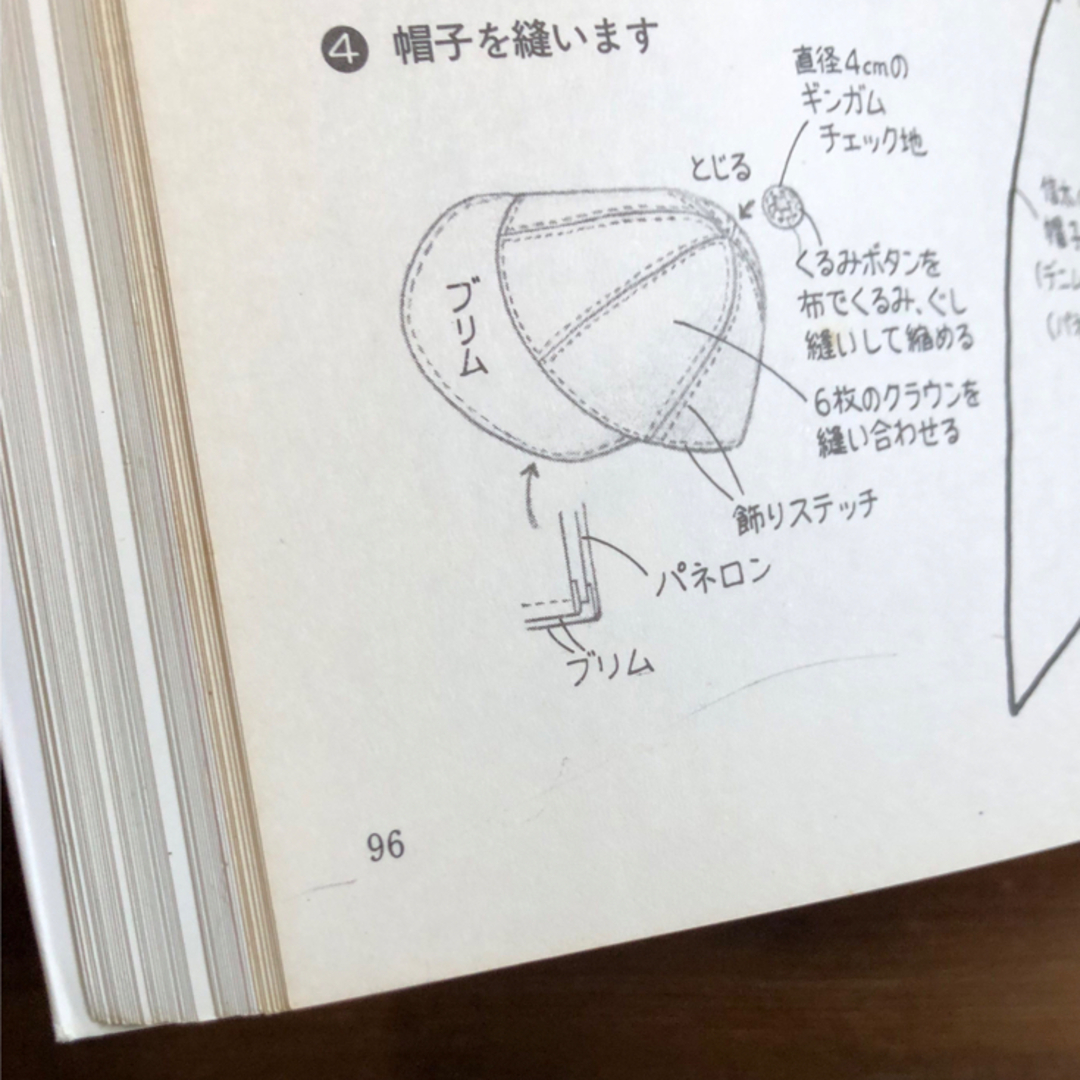 ❹ 帽子を縫います
直径4cmの
ギンガム
チェック地
とじる
くるみボタンを
布でくるみ、ぐし
縫いして縮める
ブリム
6枚のクラウンを
縫い合わせる
飾りステッチ
パネロン
ブリム
96
帽子
(デニム